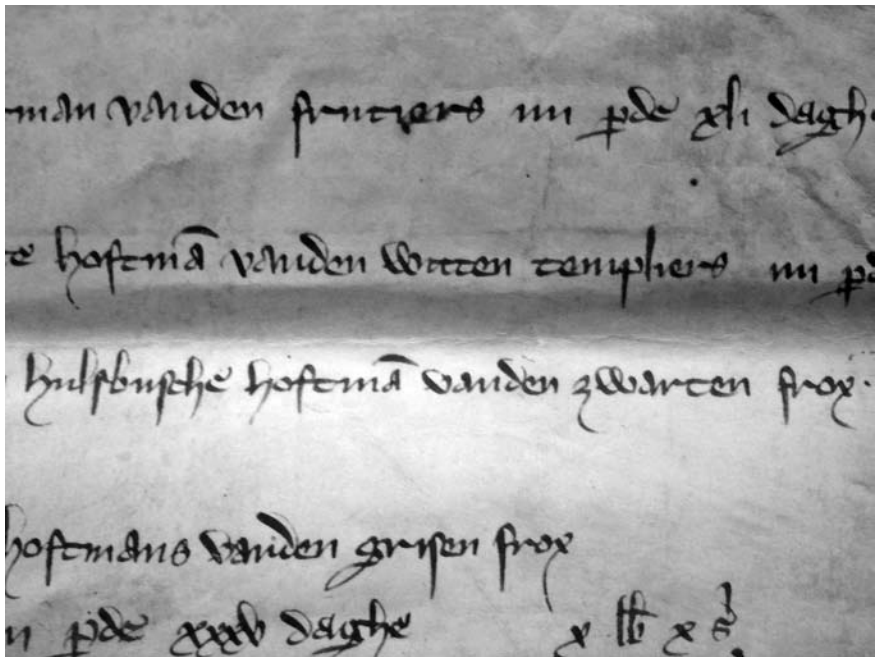 man vanden fruters iiii pde xli daghe
hoftmā vanden witten templiers iiii pd
hulsbusche hoftmā vanden zwarten frox
hoftmans vanden grisen frox
pde xxxv daghe x lb x s